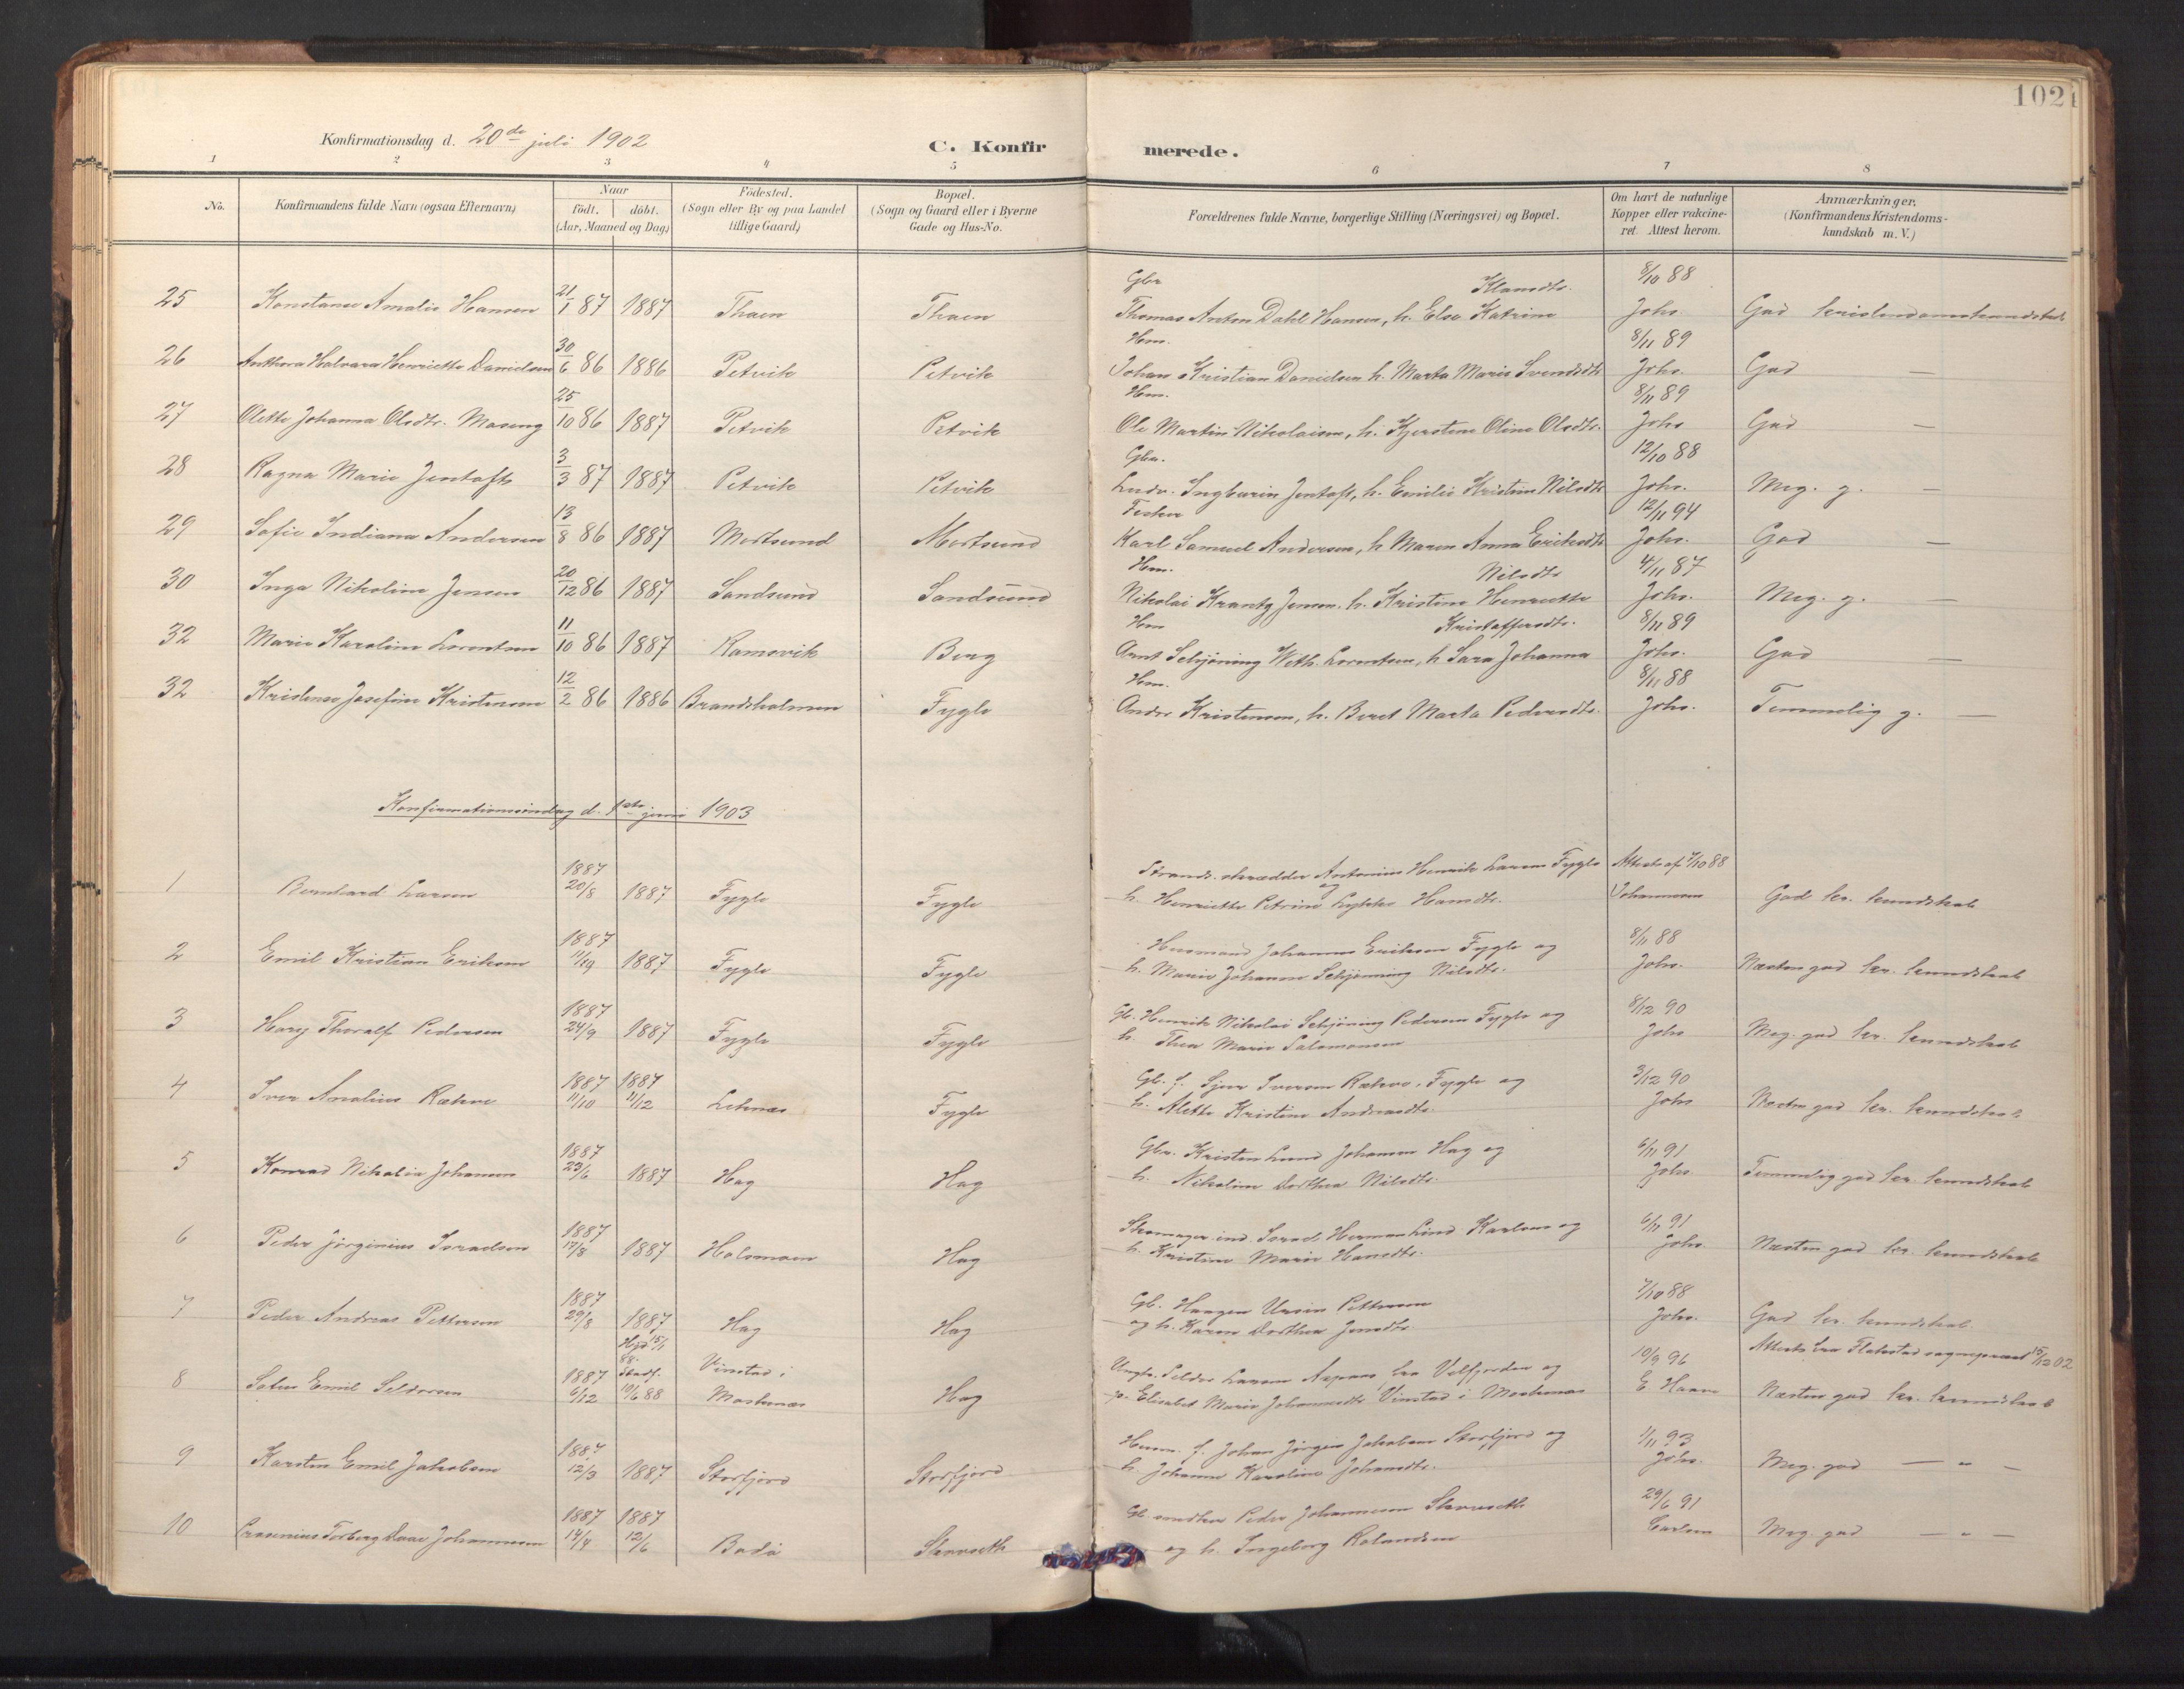 102
Konfirmationsdag d. 20de juli 1902
C. Konfirmerede.
1 2 3 4 5 6 7 8
No. Konfirmandens fulde Navn (ogsaa Efternavn) Naar født. | döbt. (Aar, Maaned og Dag) Födested. (Sogn eller By og paa Landet tillige Gaard) Bopæl. (Sogn og Gaard eller i Byerne Gade og Hus-No. Forældrenes fulde Navne, borgerlige Stilling (Næringsvei) og Bopæl. Om havt de naturlige Kopper eller vakcineret. Attest herom. Anmærkninger. (Konfirmandens Kristendomskundskab m. V.)
Gbr Klausdtr. 8/10 88
25 Konstanse Amalie Hansen 21/1 87 1887 Thaen Thaen Thomas Anton Dahl Hansen, h. Else Katrine Johs. God kristendomskundskab
Hm. 8/11 89
26 Anthora Halvara Henriette Danielsen 30/6 86 1886 Petvik Petvik Johan Kristian Danielsen h. Marta Marie Svendsdtr Johs. God —
Hm. 8/11 89
27 Olette Johanna Olsdtr. Moseng 25/10 86 1887 Petvik Petvik Ole Martin Nikolaisen, h. Kjerstine Oline Olsdtr. Johs God —
Gbr. 12/10 88
28 Ragna Marie Jentoft 3/3 87 1887 Petvik Petvik Ludv. Ingburin Jentoft, h. Emilie Kristine Nilsdtr Johs. Meg. g. —
Fisker 12/11 94
29 Sofie Indiana Andersen 13/8 86 1887 Mortsund Mortsund Karl Samuel Andersen, h Maren Anna Eriksdtr Johs. God —
Hm. Nilsdtr 4/11 87
30 Inga Nikoline Jensen 20/12 86 1887 Sandsund Sandsund Nikolai Krantz Jensen, h. Kristine Henriette Johs. Meg. g. —
Hm Kristoffersdtr. 8/11 89
32 Marie Karoline Lorentsen 11/10 86 1887 Ramsvik Berg Arnt Schjöning Weth. Lorentsen, h Sara Johanna Johs. God —
Hm. 8/11 88
32 Kristense Josefine Kristensen 12/2 86 1886 Brandsholmen Fygle Andor Kristensen, h. Beret Marta Pedersdtr. Johs. Temmelig g. —
Konfirmationssöndag d. 1ste juni 1903
1 Bernhard Larsen 1887 20/8 1887 Fygle Fygle Strands. skrædder Antonius Henrik Larsen Fygle og
h. Henriette Petrine Hansdtr. Attest af 7/10 88 Johannesen God kr. kundskab
2 Emil Kristian Eriksen 1887 1887 Fygle Fygle Husmand Johannes Eriksen Fygle og
h. Marie Johanne Schjønning Nilsdtr. 8/11 88 Johs. Næsten god kr. kundskab
3 Harg Thoralf Pedersen 1887 24/9 1887 Fygle Fygle Gb. Henrik Nikolai Schjöning Pedersen Fygle og
h. Thea Marie Salomonsen 8/12 90 Johs Meg. god kr. kundskab
4 Iver Analius Rækve 1887 11/10 1887 11/12 Leknæs Fygle Gb. f. Sjur Iversen Rækve, Fygle og
h. Alette Kristine Andreasdtr. 3/12 90 Johs Næsten god kr. kundskab
5 Konrad Nikolai Johansen 1887 23/6 1887 Hag Hag Gbr. Kristen Lund Johansen Hag og
h. Nikoline Dorthea Nilsdtr. 6/11 91 Johs. Temmelig god kr. kundskab
6 Peder Jörginius Israelsen 1887 17/8 1887 Holsmoen Hag Skomager ind. Israel Herman Lind Karlsen og
h. Kristine Marie Hansdtr. 6/11 91 Johs. Næsten god kr. kundskab
7 Peder Andreas Pettersen 1887 29/8 1887 Hag Hag Gb. Haagen Ursin Pettersen
og h. Karen Dorthea Jensdtr. 7/10 88 Johs. God kr. kundskab.
8 Emil Seldersen 1887 6/12 Hjd 15/1 88. Stadf. 10/6 88 Vinstad i Moskenæs Hag Ungk. Selder Larsen Aspaas fra Velfjorden og
p. Elisabet Marie Johannesdtr Vinstad i Moskenæs 10/9 96 E Haave Attest fra Flakstad sogneprest 15/12 02
Næsten god kr. kundskab
9 Karsten Emil Jakobsen 1887 12/3 1887 Storfjord Storfjord Husm. f. Johan Jörgen Jakobsen Storfjord og
h. Johanne Karoline Johansdtr. 1/11 93 Johs. Meg. god — " —
10 Torberg Daae Johannesen 1887 14/4 1887 12/6 Bodö Skruseth Gb. Peder Johannesen Skruseth
og h. Ingeborg Rolandsen 29/6 91 Carlsen Meg. god — " —